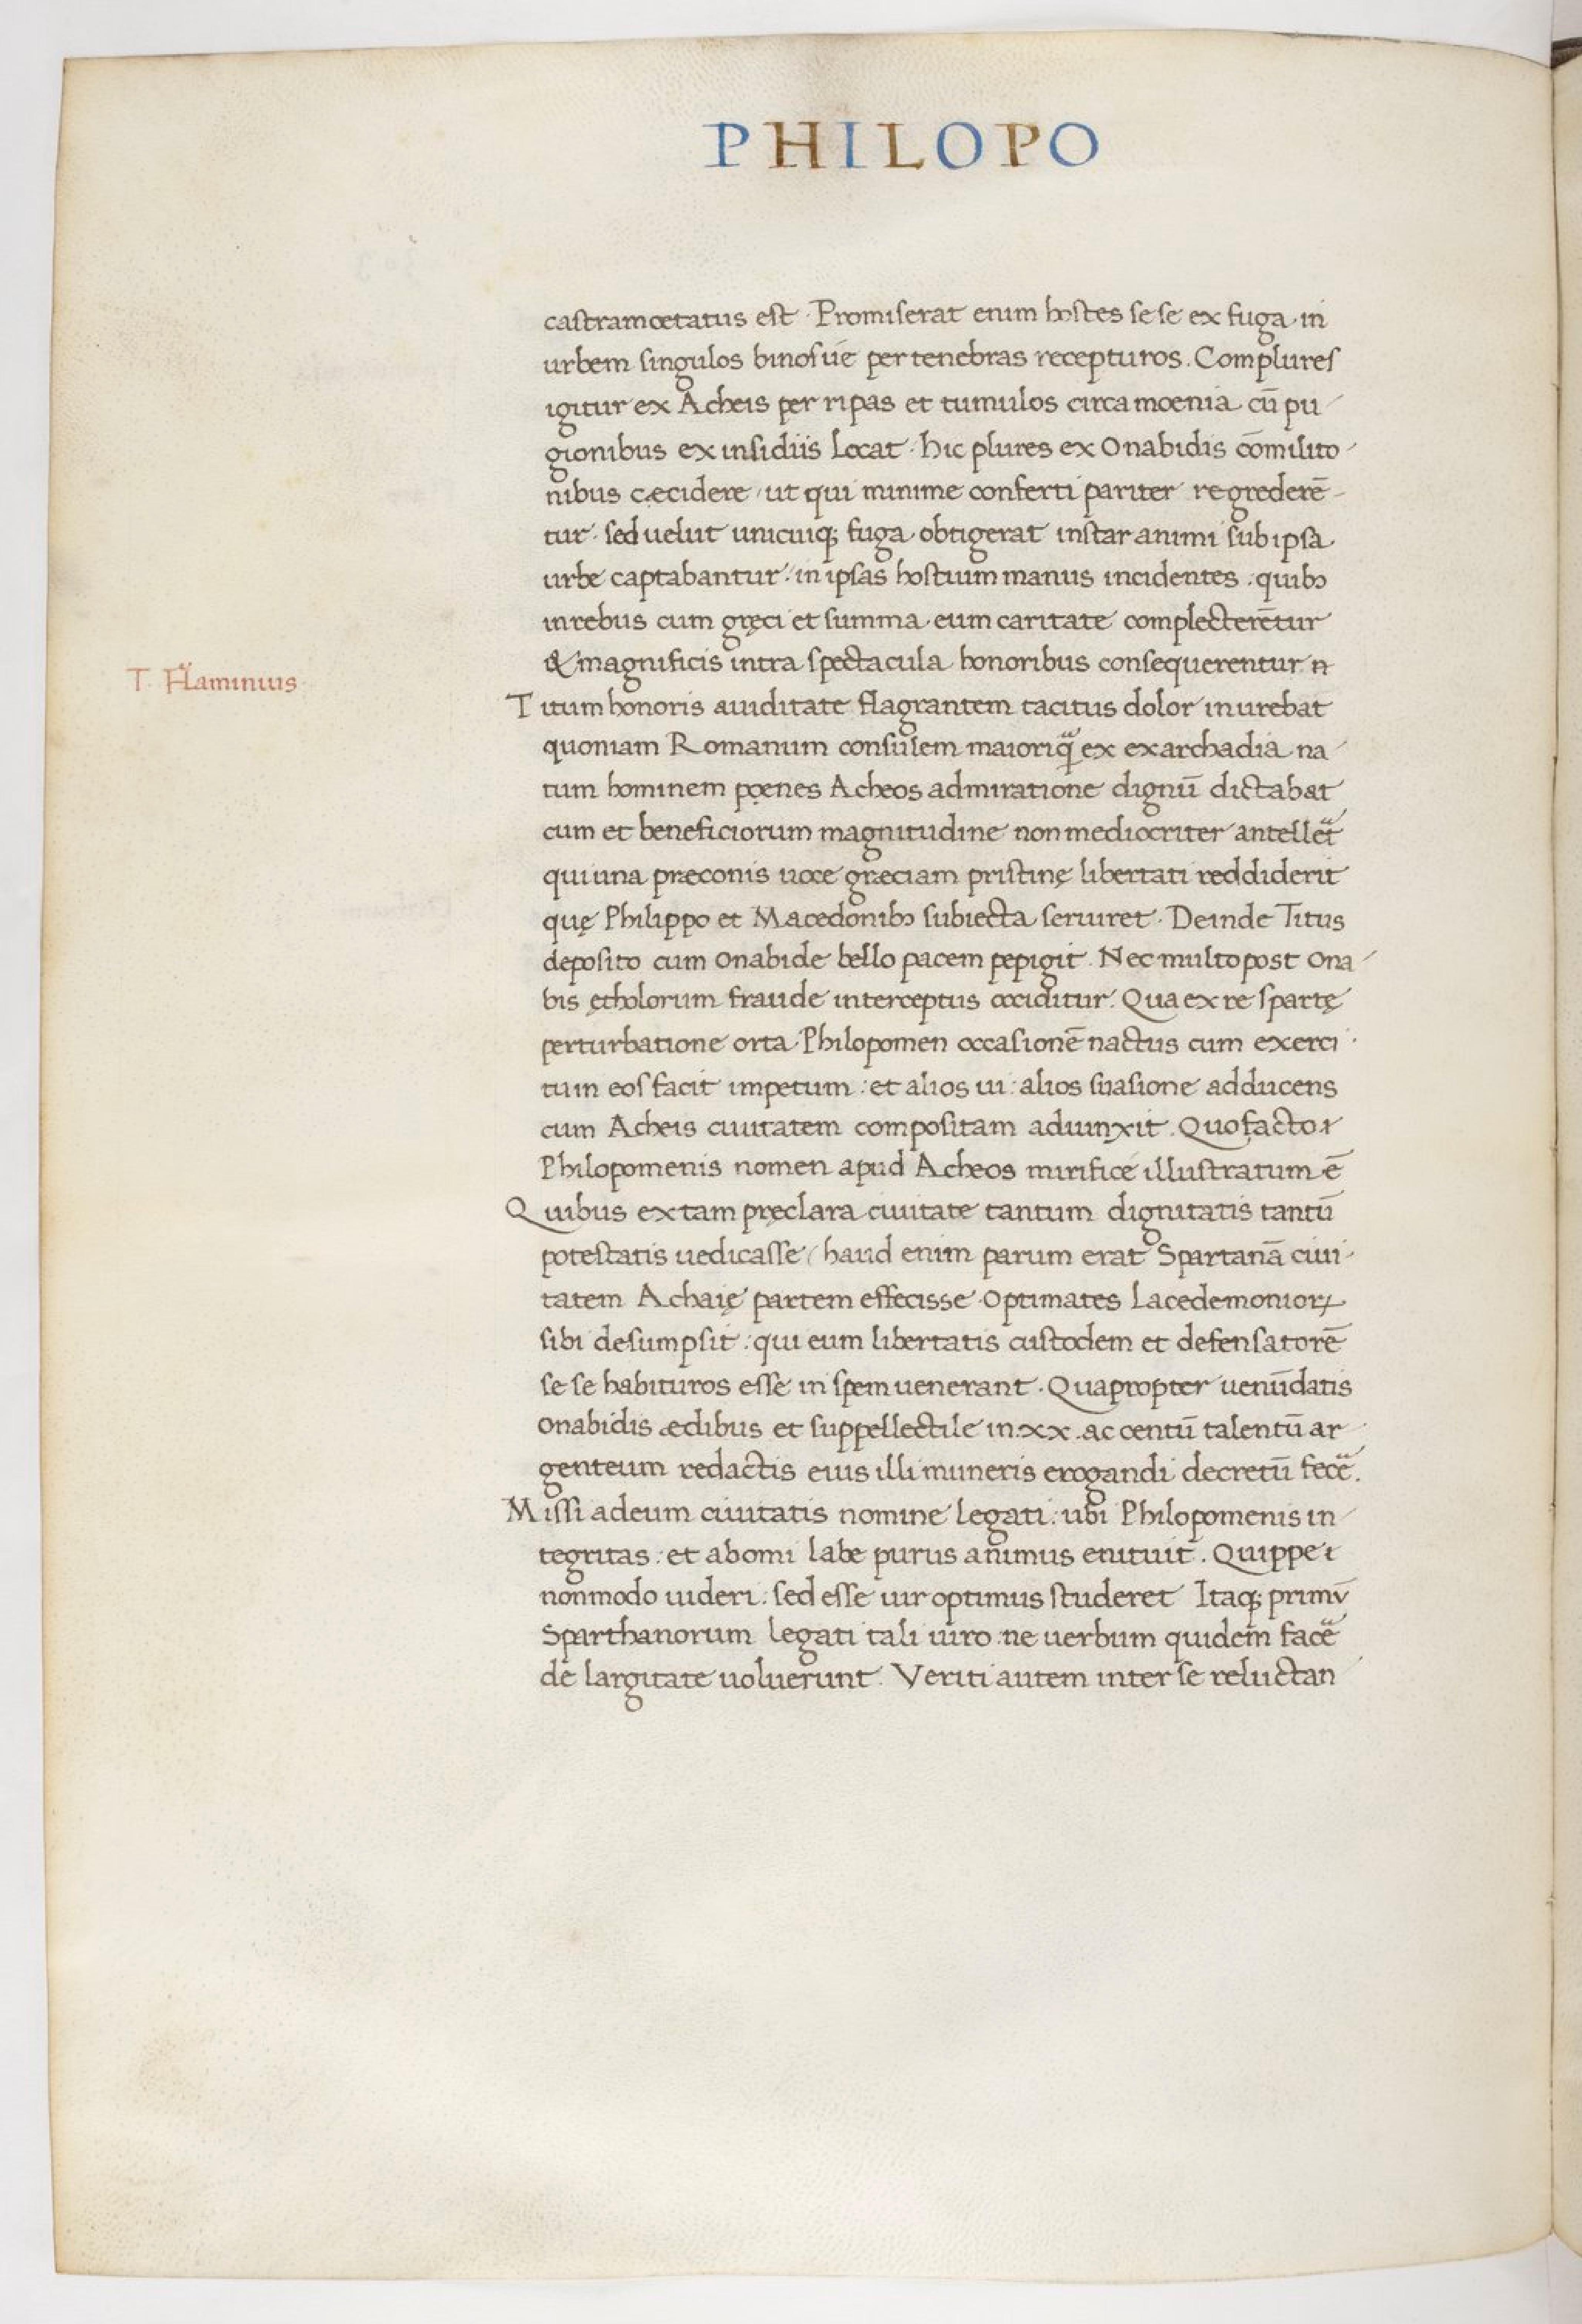 PHILOPO
castramoetatus est · Promiserat enim hostes se se ex fuga in
urbem singulos binosue per tenebras recepturos. Complures
igitur ex Acheis per ripas et tumulos circa moenia cū pu
gionibus ex insidiis locat · hic plures ex Onabidis cōmilito
nibus cæcidere / ut qui minime conferti pariter regrederē
tur · sed uelut unicuiq; fuga obtigerat instar animi sub ipsa
urbe captabantur : in ipsas hostium manus incidentes : quibꝫ
in rebus cum gręci et summa eum caritate complecterētur
& magnificis intra spectacula honoribus consequerentur
T. Flaminius
Titum honoris auiditate flagrantem tacitus dolor inurebat
quoniam Romanum consulem maiori ex exarchadia na
tum hominem poenes Acheos admiratione dignū dictabat
cum et beneficiorum magnitudine non mediocriter
qui una præconis uoce græciam pristinę libertati reddiderit
quę Philippo et Macedonibꝫ subiecta seruiret · Deinde Titus
deposito cum Onabide bello pacem pepigit. Nec multo post Ona
bis ętholorum fraude interceptus occiditur. Qua ex re spartę
perturbatione orta Philopomen occasionē nactus cum exerci
tum eos facit impetum : et alios ui : alios suasione adducens
cum Acheis ciuitatem compositam adiunxit. Quo facto
Philopomenis nomen apud Acheos mirifice illustratum ē
Quibus ex tam pręclara ciuitate tantum dignitatis tantū
potestatis uedicasse / haud enim parum erat Spartanā ciui
tatem Achaię partem effecisse Optimates Lacedemonioꝝ
sibi desumpsit : qui eum libertatis custodem et defensatorē
se se habituros esse in spem uenerant · Quapropter uenūdatis
Onabidis ædibus et suppellectile in .xx. ac centū talentū ar
genteum redactis eius illi muneris erogandi decretū
Missi ad eum ciuitatis nomine legati : ubi Philopomenis in
tegritas : et ab omi labe purus animus enituit. Quippe
non modo uideri : sed esse uir optimus studeret Itaq; primū
Sparthanorum legati tali uiro ne uerbum quidem
de largitate uoluerunt. Veriti autem inter se reluctan